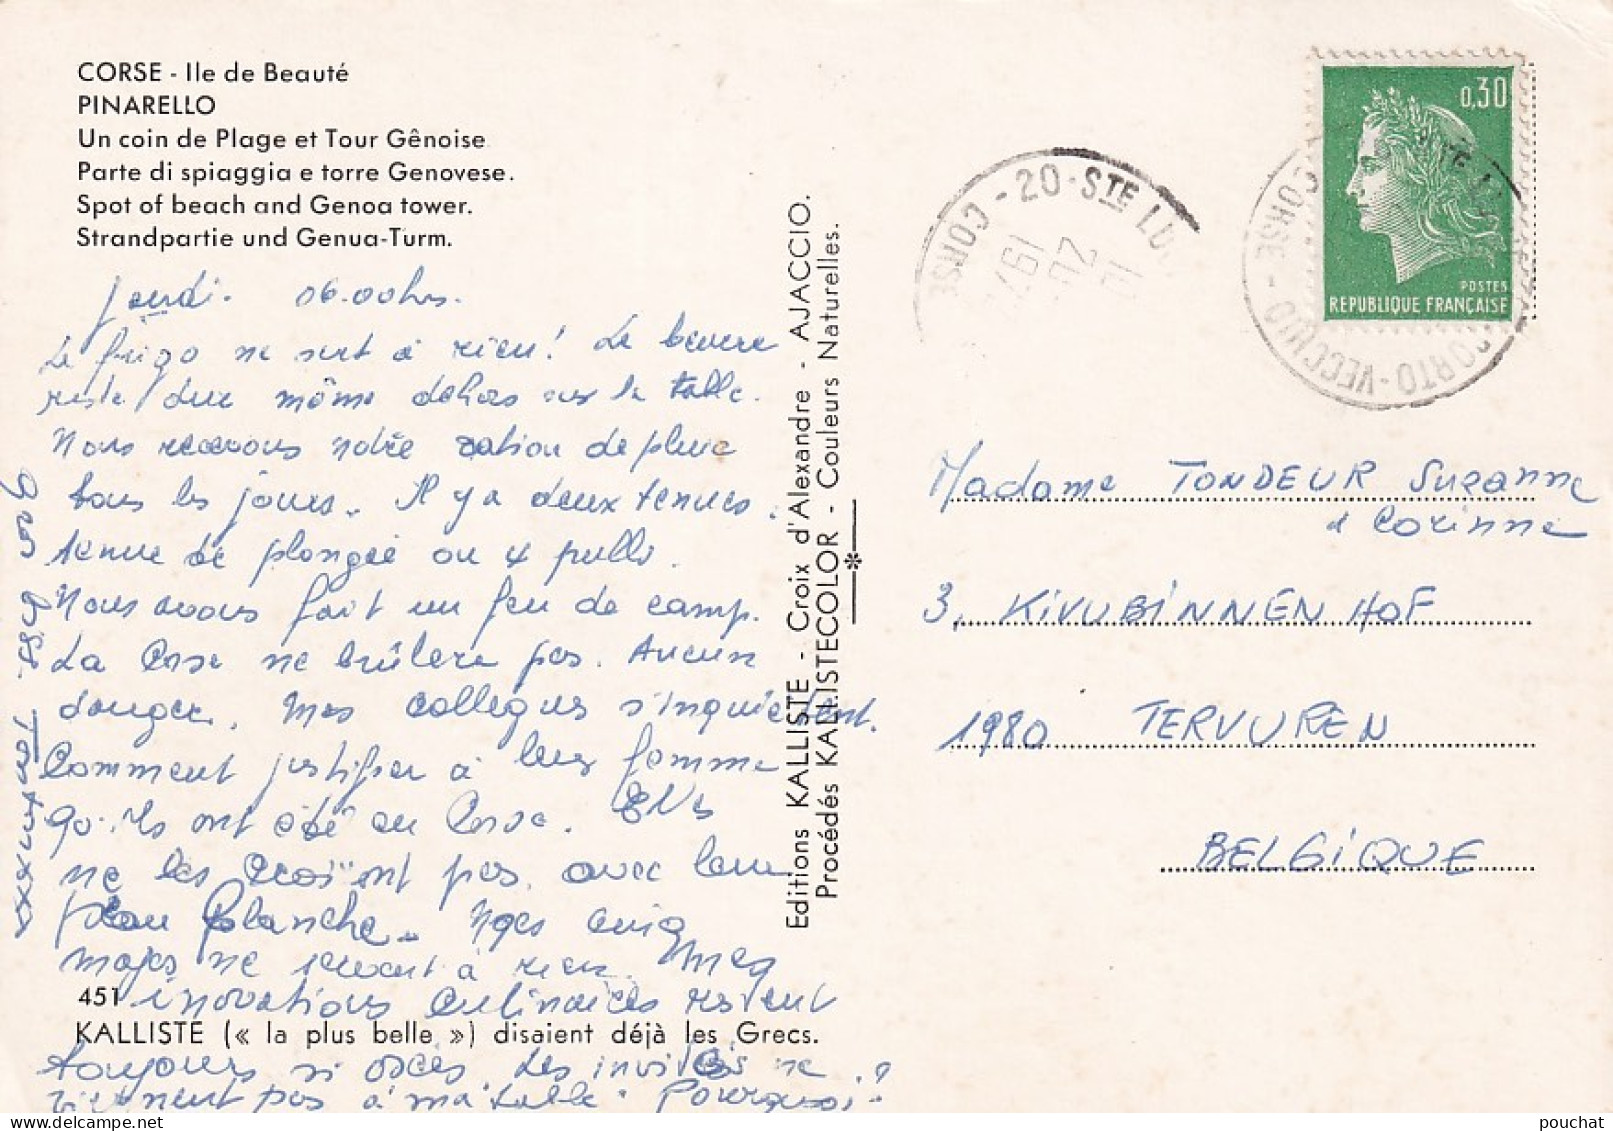 CORSE - Ile de Beauté
PINARELLO
Un coin de Plage et Tour Gênoise
Parte di spiaggia e torre Genovese.
Spot of beach and Genoa tower.
Strandpartie und Genua-Turm.
Jeudi. 06.00hrs.
Le frigo ne sert à rien! Le beurre
reste dur même dehors sur la table.
Nous recevons notre ration de pluie
tous les jours. Il y a deux tenues.
tenue de plongée ou 4 pulls.
Nous avons fait un feu de camp.
La Corse ne brûlera pas. Aucun
danger. Mes collègues s'inquiètent.
Comment justifier à leur femme
qu'ils ont été en Corse. Elles
ne les croiront pas avec leur
peau blanche. Mes
ne servent à rien. Mes
451 inovations culinaires restent
KALLISTE (« la plus belle ») disaient déjà les Grecs.
toujours si osées. Les invités ne
viennent pas à ma table. Pourquoi?
Gros
Editions KALLISTE - Croix d'Alexandre - AJACCIO.
Procédés KALLISTECOLOR - Couleurs Naturelles.
CORSE - 20 - STE LUC
0,30
POSTES
REPUBLIQUE FRANÇAISE
CORSE - PORTO-VECCHIO
Madame TONDEUR Suzanne
& Corinne
3, KIVUBINNENHOF
1980 TERVUREN
BELGIQUE
pouchat